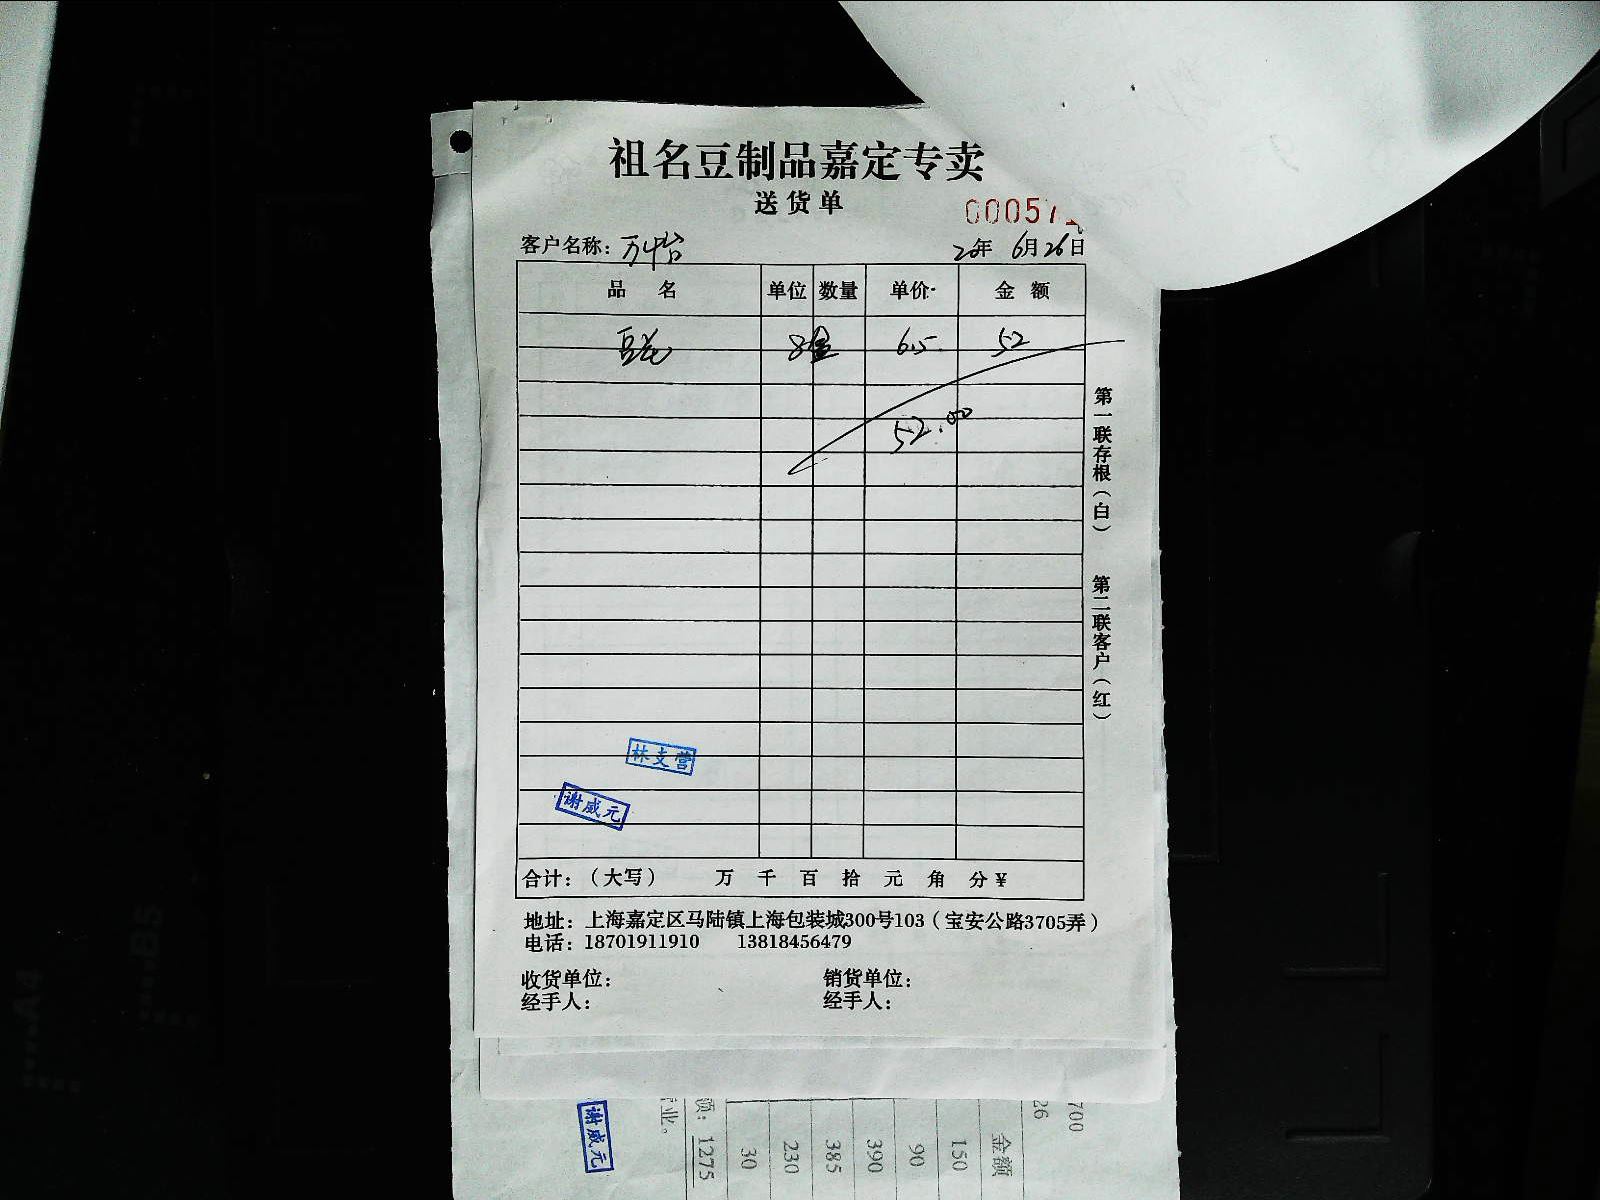 祖名豆制品嘉定专卖
送货单
00057
客户名称：万中台
20年 6月26日
品 名 单位 数量 单价 金 额
豆花 8盒 6.5 52
52.00
第一联存根（白） 第二联客户（红）
林支营
谢威元
合计：（大写） 万 千 百 拾 元 角 分¥
地址：上海嘉定区马陆镇上海包装城300号103（宝安公路3705弄）
电话：18701911910 13818456479
收货单位： 销货单位：
经手人： 经手人：
谢威元
业。
额：1275
30
230
385
390
90
150
金额
26
700